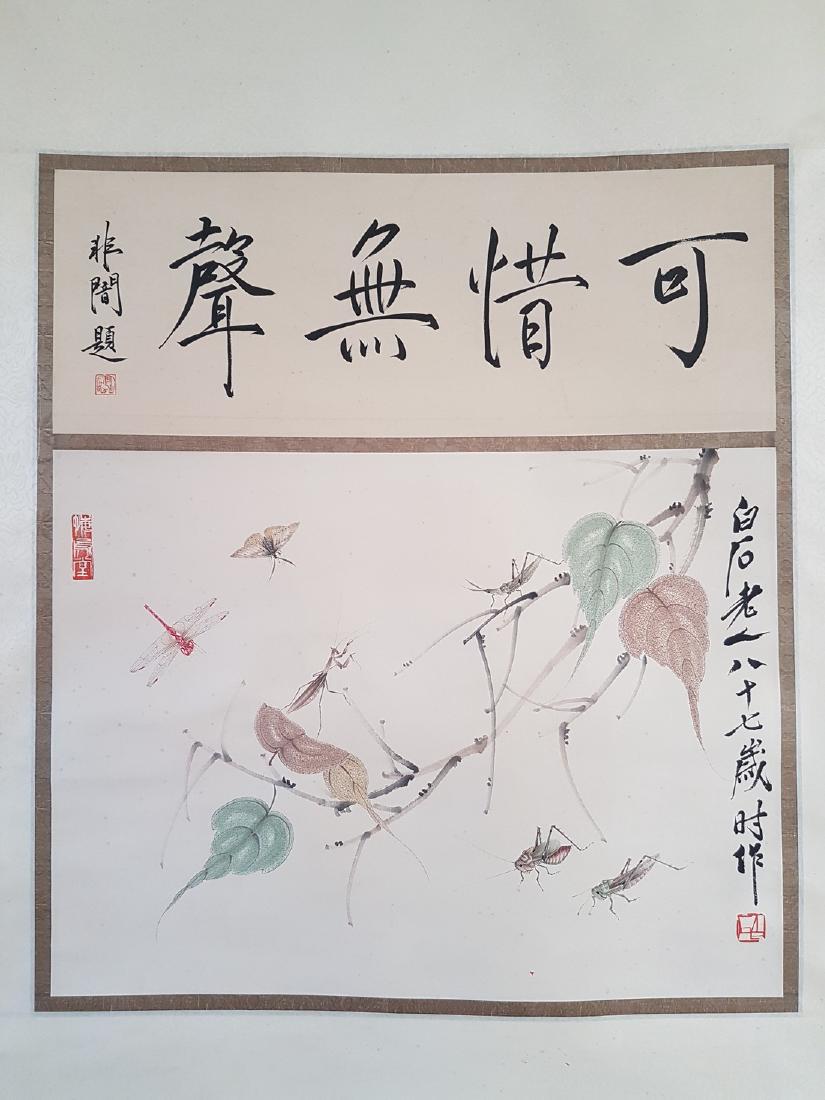 可惜無聲
非闇題
白石老人八十七歲时作